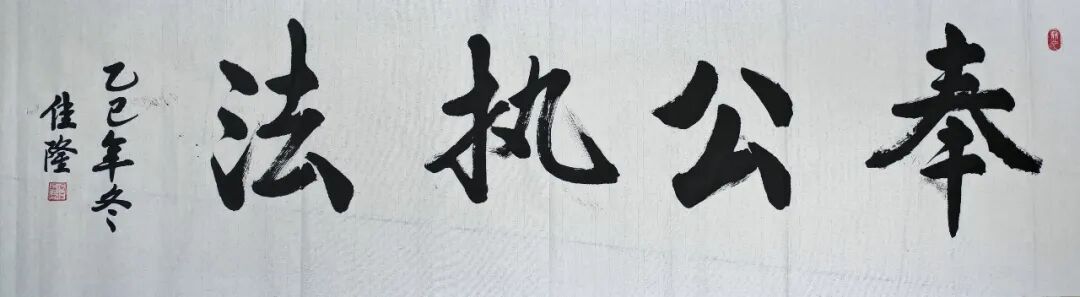 奉公执法
乙巳年冬
佳隆